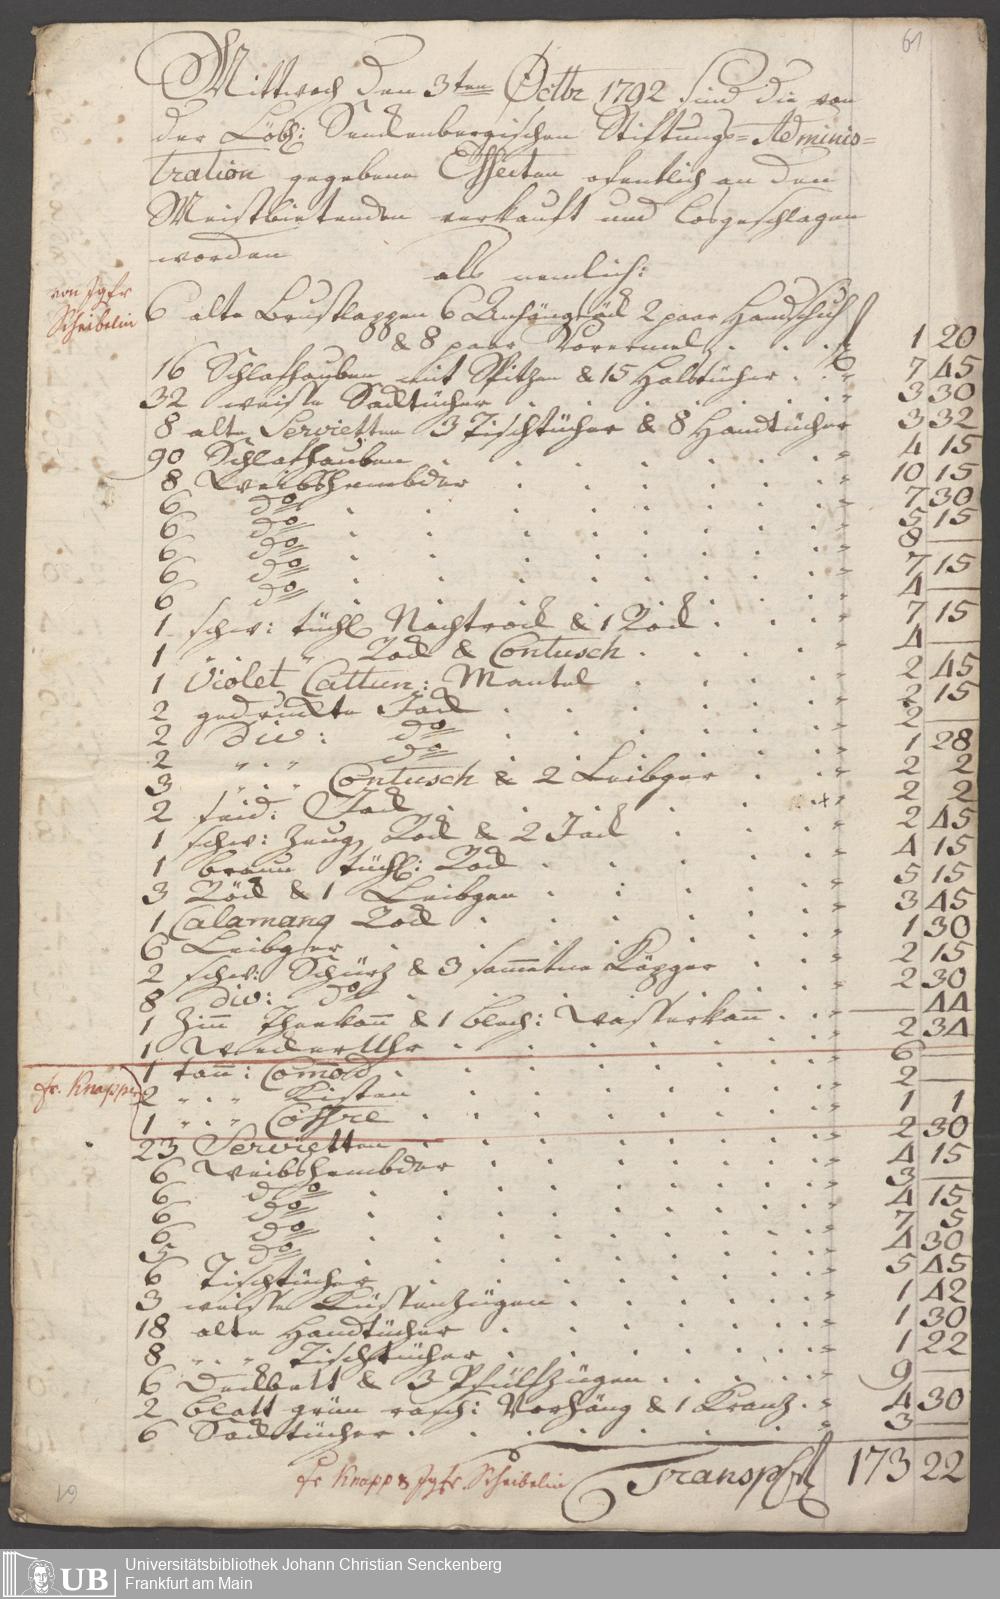 61
Mittwoch den 3ten Octbr 1792 sind die von
der Löbl: Senckenbergischen Stiftungs=Adminis=
tration gegebene Effecten öfentlich an den
Meistbietenden verkauft und losgeschlagen
worden
als nemlich:
von Jgfr
Scheibelin
6 alte Brustlappen 6 Anhängsäck 2 paar Handschuh
& 8 paar Vorermel . . . f 1 20
16 Schlafhauben mit Spitzen & 15 Halstücher . . " 7 45
32 weisse Sacktücher . . . " 3 30
8 alte Servietten 3 Tischtücher & 8 Handtücher 3 32
90 Schlafhauben . . . " 4 15
8 Weibshembder . . . " 10 15
6 do . . . " 7 30
6 do . . . " 5 15
6 do . . . " 8 —
6 do . . . " 7 15
6 do . . . " 4 —
1 schw: tüchl Nachtrock & 1 Rock . . . " 7 15
1 " . " Rock & Contusch . . . " 4 —
1 Violet Cattun: Mantel . . . " 2 45
2 gedruckte Jack . . . " 2 15
2 div: do . . . " 2 —
2 " . " do . . . " 1 28
3 " . " Contusch & 2 Leibger . . " 2 2
2 seid: Jack . . . " 2 2
1 schw: Zeug Rock & 2 Jack . . . " 2 45
1 braun tüchl: Rock . . . " 4 15
3 Röck & 1 Leibgen . . . " 5 15
1 Calamang Rock . . . " 3 45
6 Leibger . . . " 1 30
2 schw: Schürz & 3 sammetne Käpger . . " 2 15
8 div: do . . . " 2 30
1 Zinn Theekann & 1 blech: Wasserkann . . " — 44
1 Wecker Uhr . . . " 2 34
fr. Knapp
1 tann: Comod . . . " 6 —
2 " . " Kisten . . . " 2 —
1 " . " Coffre . . . " 1 1
23 Servietten . . . " 2 30
6 Weibshembder . . . " 4 15
6 do . . . " 3 —
6 do . . . " 4 15
6 do . . . " 7 5
5 do . . . " 4 30
6 Tischtücher . . . " 5 45
3 weisse Küssenzügen . . . " 1 42
18 alte Handtücher . . . " 1 30
8 " . " Tischtücher . . . " 1 22
6 Deckbett & 3 Pfülfzügen . . . " 9 —
2 blatt grün rasch: Vorhäng & 1 Kranz . " 4 30
6 Sacktücher . . . " 3 —
fr Knapp & Jgfr. Scheibelin
Transp f 173 22
61
UB
Universitätsbibliothek Johann Christian Senckenberg
Frankfurt am Main